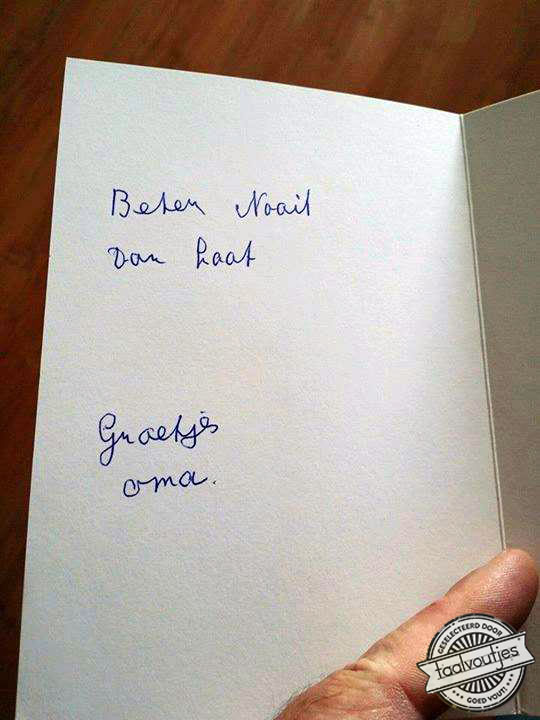 Beter Nooit
Dan Laat
Groetjes
oma.
GESELECTEERD DOOR
taalvoutjes
GOED VOUT!